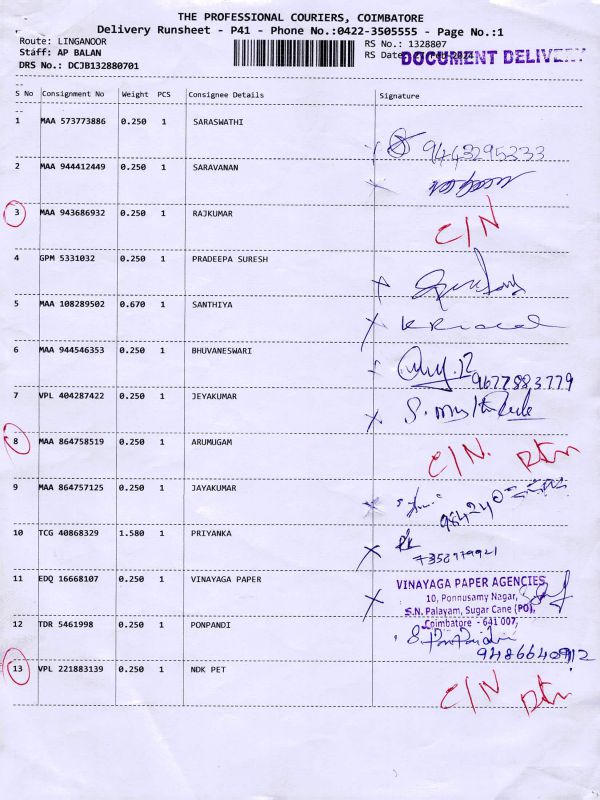 THE PROFESSIONAL COURIERS, COIMBATORE
Delivery Runsheet - P41 - Phone No.:0422-3505555 - Page No.:1
Route: LINGANOOR
RS No.: 1328807
Staff: AP BALAN
RS Date
DOCUMENT DELIVERY
DRS No.: DCJB132880701
S No Consignment No Weight PCS Consignee Details Signature
1 MAA 573773886 0.250 1 SARASWATHI
9443295333
2 MAA 944412449 0.250 1 SARAVANAN
3 MAA 943686932 0.250 1 RAJKUMAR C/N
4 GPM 5331032 0.250 1 PRADEEPA SURESH
5 MAA 108289502 0.670 1 SANTHIYA
6 MAA 944546353 0.250 1 BHUVANESWARI
9677883779
7 VPL 404287422 0.250 1 JEYAKUMAR
8 MAA 864758519 0.250 1 ARUMUGAM C/N. Rtn
9 MAA 864757125 0.250 1 JAYAKUMAR
10 TCG 40868329 1.580 1 PRIYANKA
7358979921
11 EDQ 16668107 0.250 1 VINAYAGA PAPER
VINAYAGA PAPER AGENCIES
10, Ponnusamy Nagar,
S.N. Palayam, Sugar Cane (PO),
Coimbatore - 641 007,
12 TDR 5461998 0.250 1 PONPANDI
9486640912
13 VPL 221883139 0.250 1 NDK PET C/N Rtn